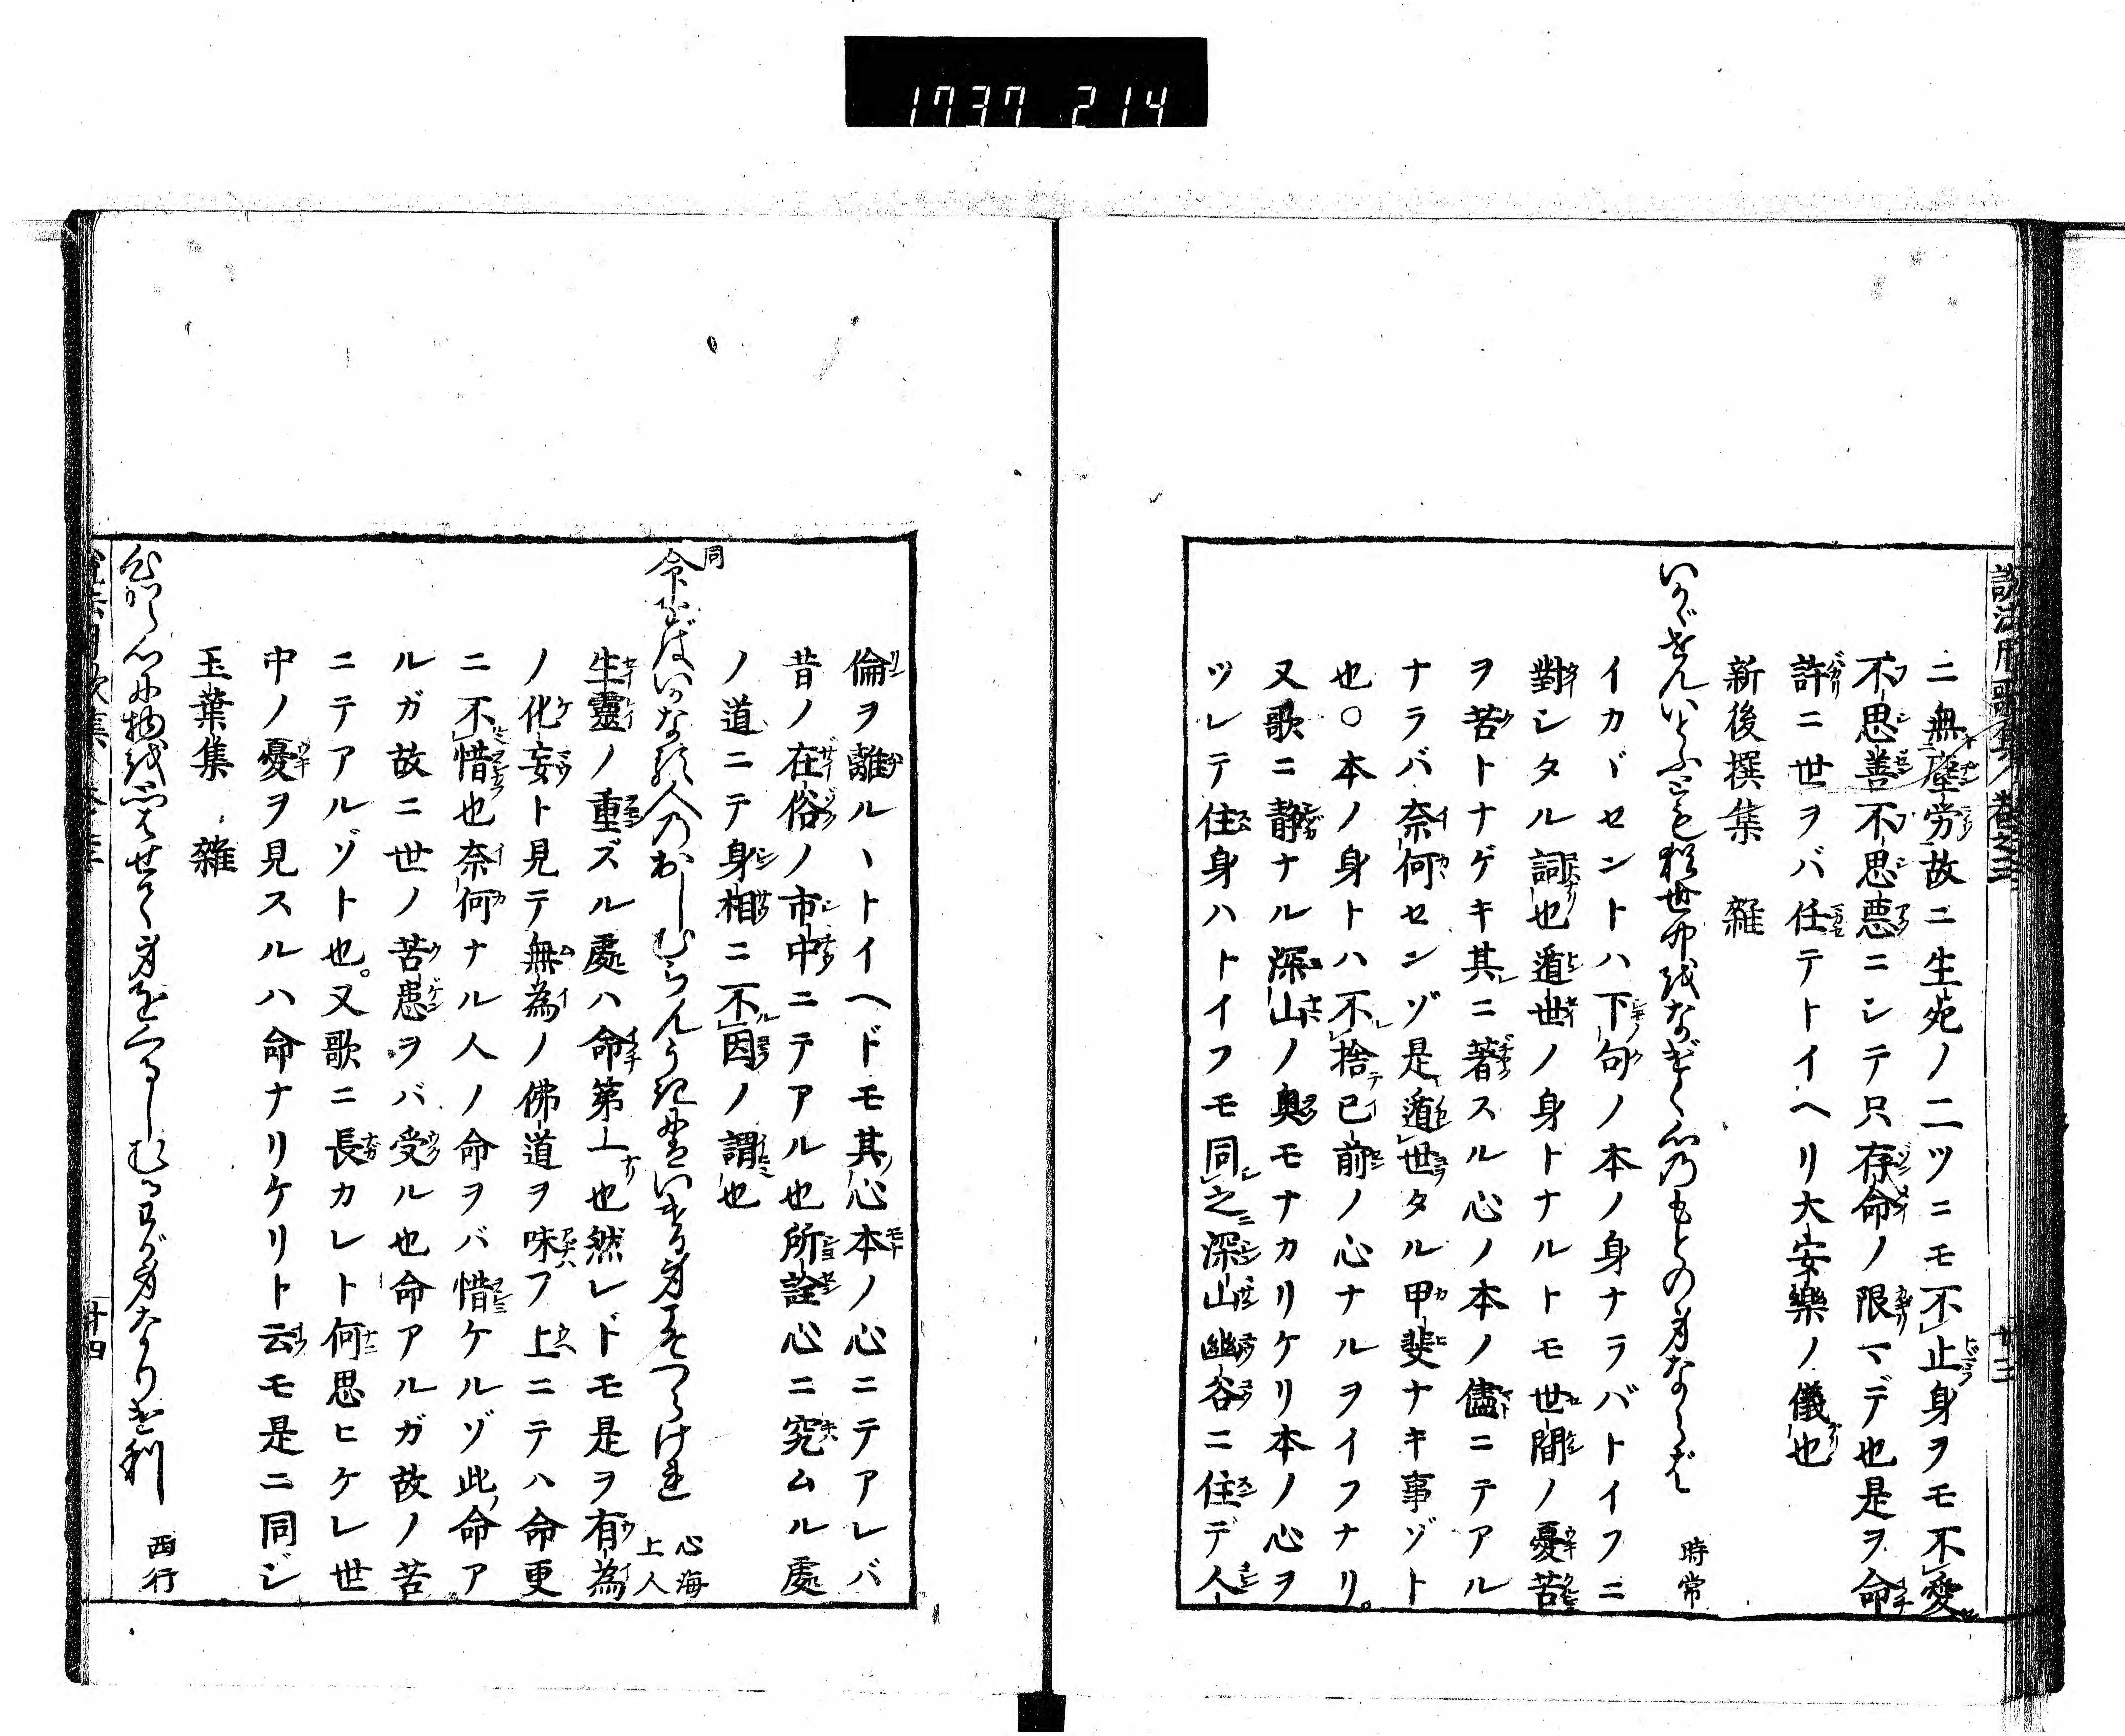 1737 214
説法用歌集 巻之三 廿三
ニ無塵労故ニ生死ノ二ツニモ不止身ヲモ不愛
不思善不思悪ニシテ只存命ノ限マデ也是ヲ命
許ニ世ヲバ任テトイヘリ大安樂ノ儀也
新後撰集 雜
いかゞせんいとふとも猶世中をなげく心のもとの身ならば 時常
イカヾセントハ下句ノ本ノ身ナラバトイフニ
對シタル詞也遁世ノ身トナルトモ世間ノ憂苦
ヲ苦トナゲキ其ニ著スル心ノ本ノ儘ニテアル
ナラバ奈何センゾ是遁世タル甲斐ナキ事ゾト
也〇本ノ身トハ不捨已前ノ心ナルヲイフナリ。
又歌ニ静ナル深山ノ奥モナカリケリ本ノ心ヲ
ツレテ住身ハトイフモ同之深山幽谷ニ住デ人
倫ヲ離ルヽトイヘドモ其心本ノ心ニテアレバ
昔ノ在俗ノ市中ニテアル也所詮心ニ究ムル處
ノ道ニテ身相ニ不因ノ謂也
同
命をばいかなる人のおしむらんうきにはいける身こそつらけれ 心海上人
生靈ノ重ズル處ハ命第一也然レドモ是ヲ有為
ノ化妄ト見テ無為ノ佛道ヲ味フ上ニテハ命更
ニ不惜也奈何ナル人ノ命ヲバ惜ケルゾ此命ア
ルガ故ニ世ノ苦患ヲバ受ル也命アルガ故ノ苦
ニテアルゾト也。又歌ニ長カレト何思ヒケレ世
中ノ憂ヲ見スルハ命ナリケリト云モ是ニ同ジ
玉葉集 雜
心から心に物を思はせて身をくるしむる我身なりけり 西行
説法用歌集 巻之三 廿四